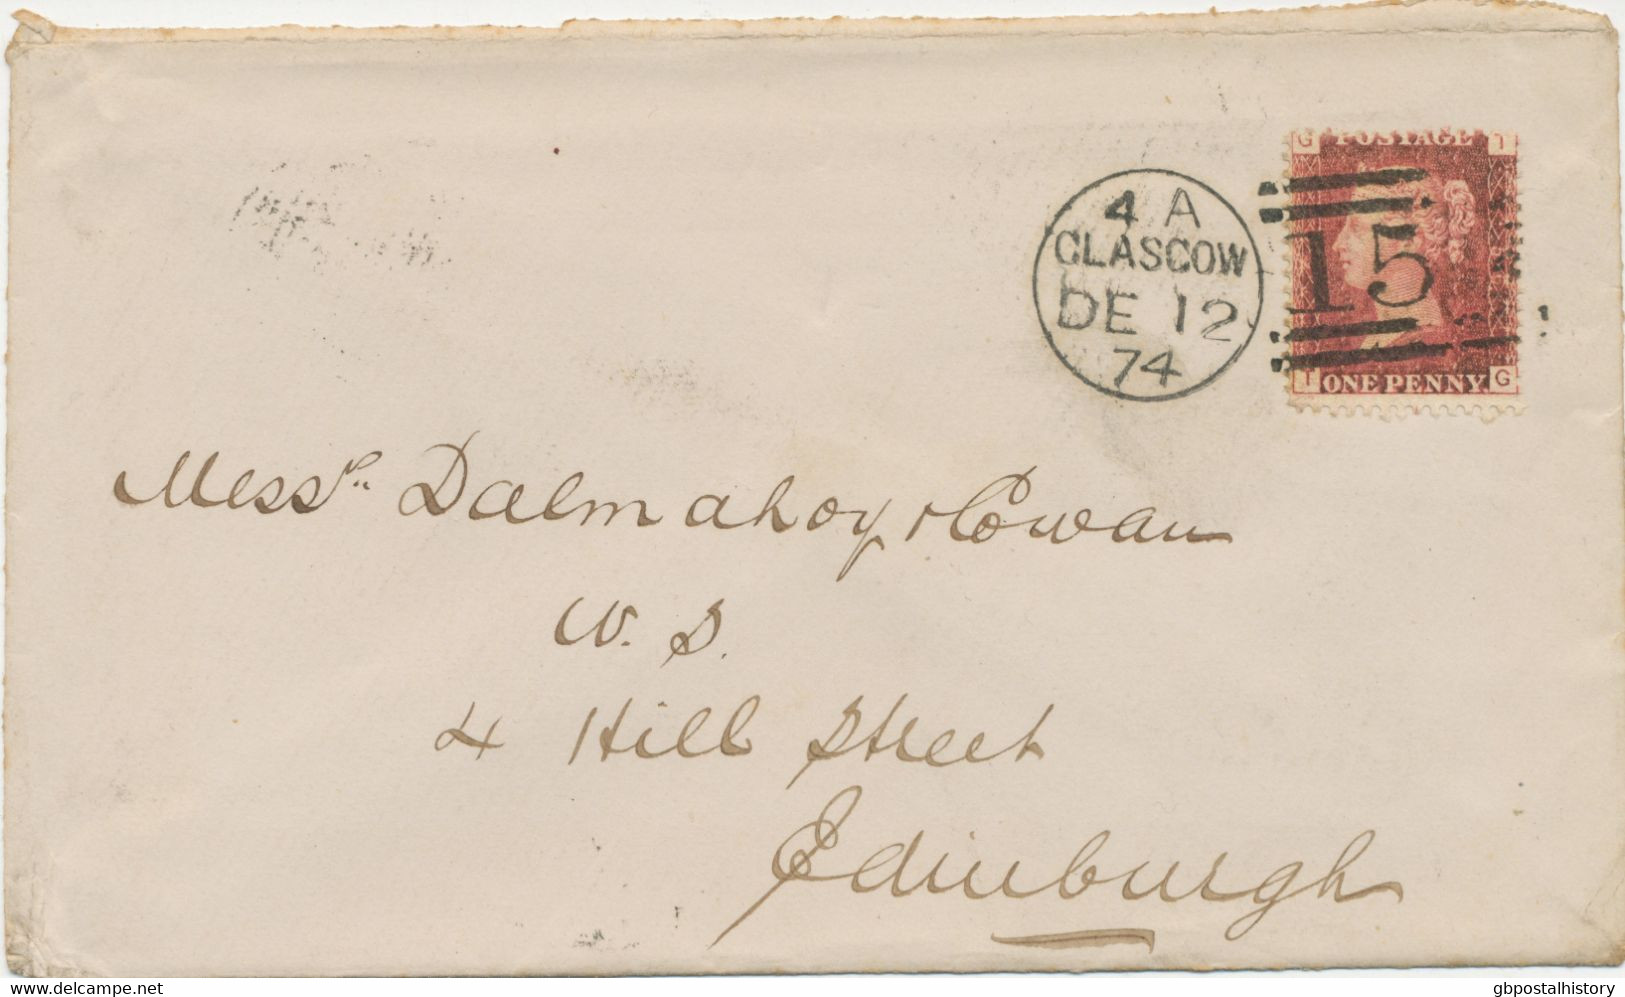 G POSTAGE I
4 A
GLASGOW
DE 12
74
15
I ONE PENNY G
Messrs Dalmahoy & Cowan
W. S.
4 Hill Street
Edinburgh
www.delcampe.net
gbpostalhistory